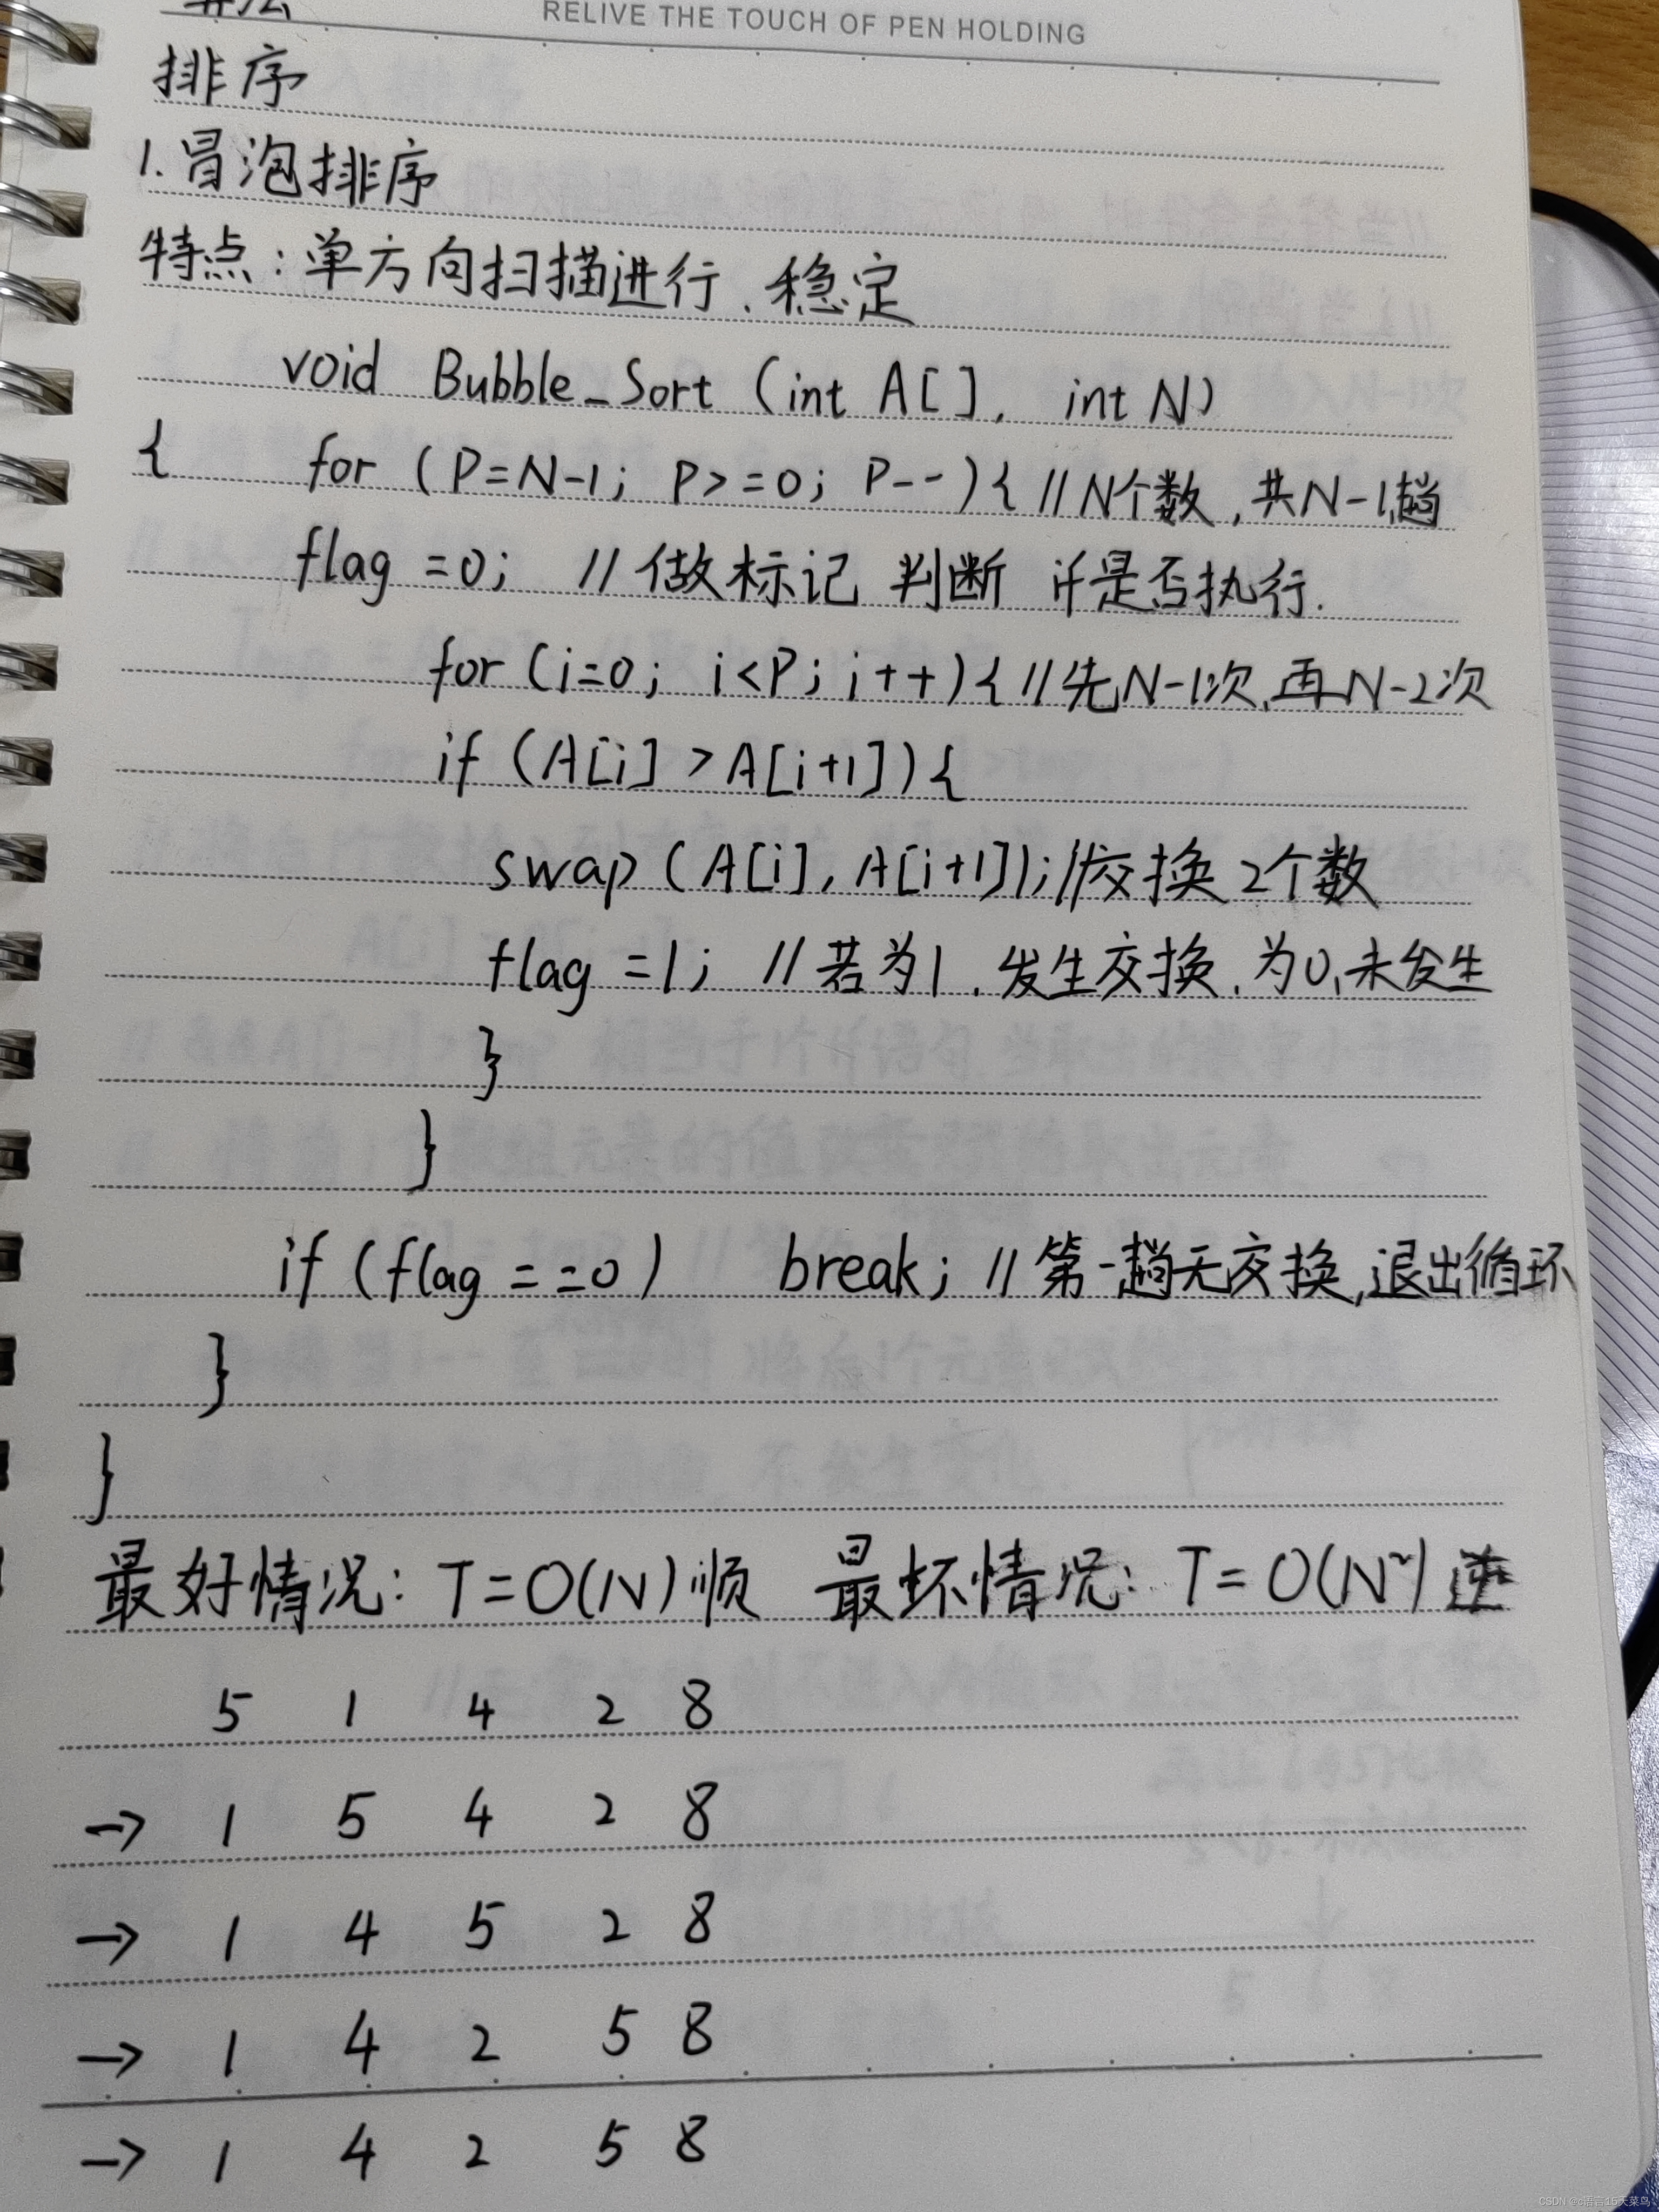 算法
RELIVE THE TOUCH OF PEN HOLDING
排序
1.冒泡排序
特点:单方向扫描进行.稳定
void Bubble_Sort (int A[], int N)
{ for (P=N-1; P>=0; P--){ //N个数,共N-1趟
flag =0; //做标记 判断 if是否执行.
for (i=0; i<P; i++){ //先N-1次,再N-2次
if (A[i] >A[i+1]){
swap (A[i], A[i+1]);//交换2个数
flag =1; //若为1,发生交换,为0,未发生
}
}
if (flag ==0) break; //第一趟无交换,退出循环
}
}
最好情况: T=O(N)顺 最坏情况: T=O(N²)逆
5 1 4 2 8
→ 1 5 4 2 8
→ 1 4 5 2 8
→ 1 4 2 5 8
→ 1 4 2 5 8
CSDN @c语言15天菜鸟